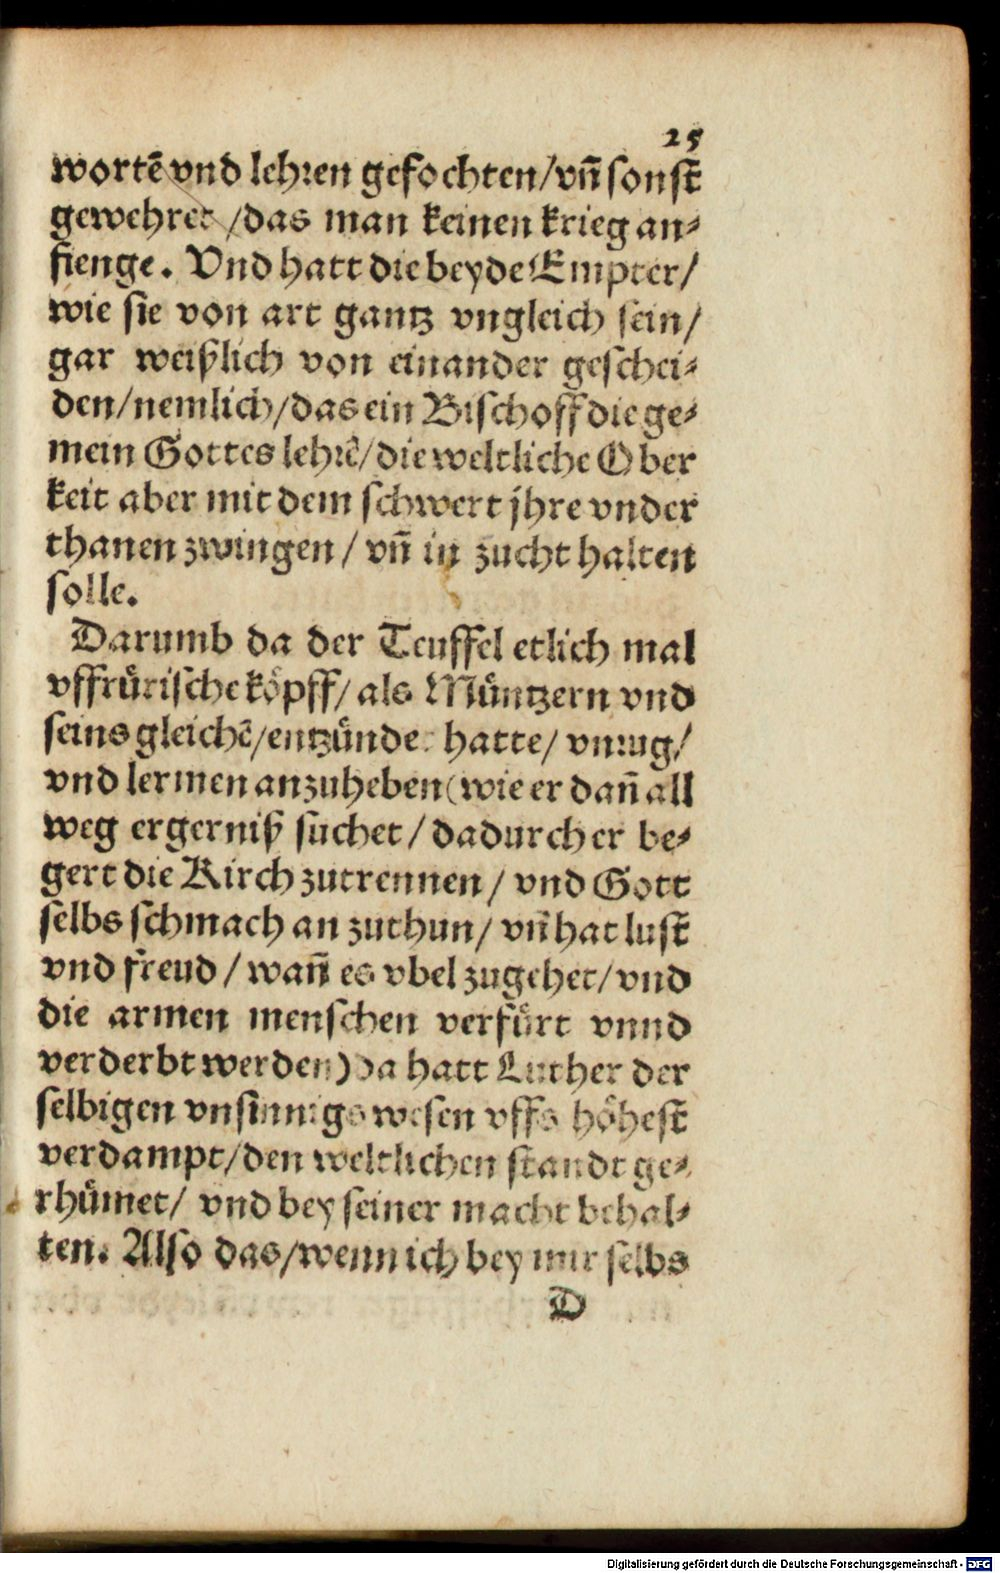 25
wortẽ vnd lehren gefochten/vñ sonst
gewehret /das man keinen krieg an-
fienge. Vnd hatt die beyde Empter/
wie sie von art gantz vngleich sein/
gar weißlich von einander geschei-
den/nemlich/das ein Bischoff die ge-
mein Gottes lehrẽ/die weltliche Ober
keit aber mit dem schwert jhre vnder
thanen zwingen / vñ in zucht halten
solle.
Darumb da der Teuffel etlich mal
vffrürische köpff/ als Müntzern vnd
seins gleichẽ/entzündet hatte/ vnrug/
vnd lermen anzuheben (wie er dañ all
weg ergerniß suchet / dadurch er be-
gert die Kirch zutrennen / vnd Gott
selbs schmach an zuthun/ vñ hat lust
vnd freud / wañ es vbel zugehet/ vnd
die armen menschen verfürt vnnd
verderbt werden) Da hatt Luther der
selbigen vnsinnigs wesen vffs höhest
verdampt/den weltlichen standt ge-
rhümet/ vnd bey seiner macht behal-
ten. Also das/wenn ich bey mir selbs
D
Digitalisierung gefördert durch die Deutsche Forschungsgemeinschaft - DFG